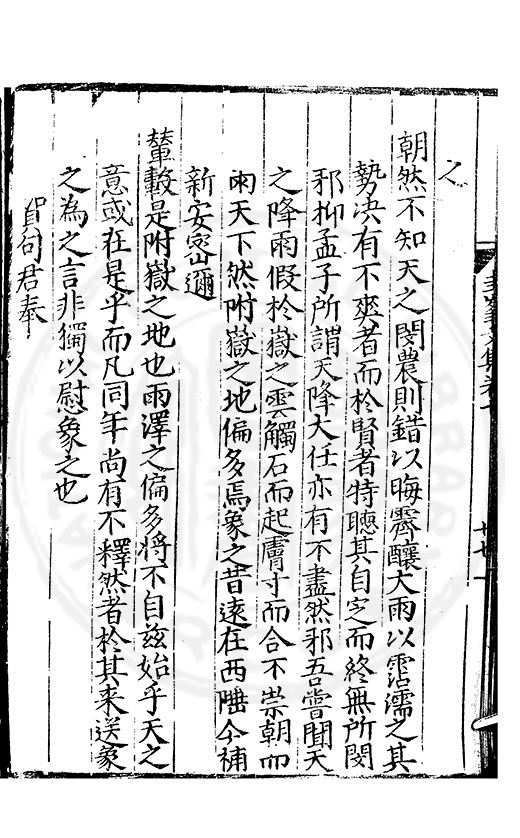 之
朝然不知天之閔農則錯以晦霽釀大雨以霑濡之其
勢决有不爽者而於賢者特聽其自定而終無所閔
邪抑孟子所謂天降大任亦有不盡然邪吾嘗聞天
之降雨假於嶽之雲觸石而起膚寸而合不崇朝而
雨天下然附嶽之地偏多焉象之昔遠在西陲今補
新安密邇
輦轂是附嶽之地也雨澤之偏多將不自茲始乎天之
意或在是乎而凡同年尚有不釋然者於其来送象
之為之言非獨以慰象之也
賀何君奉